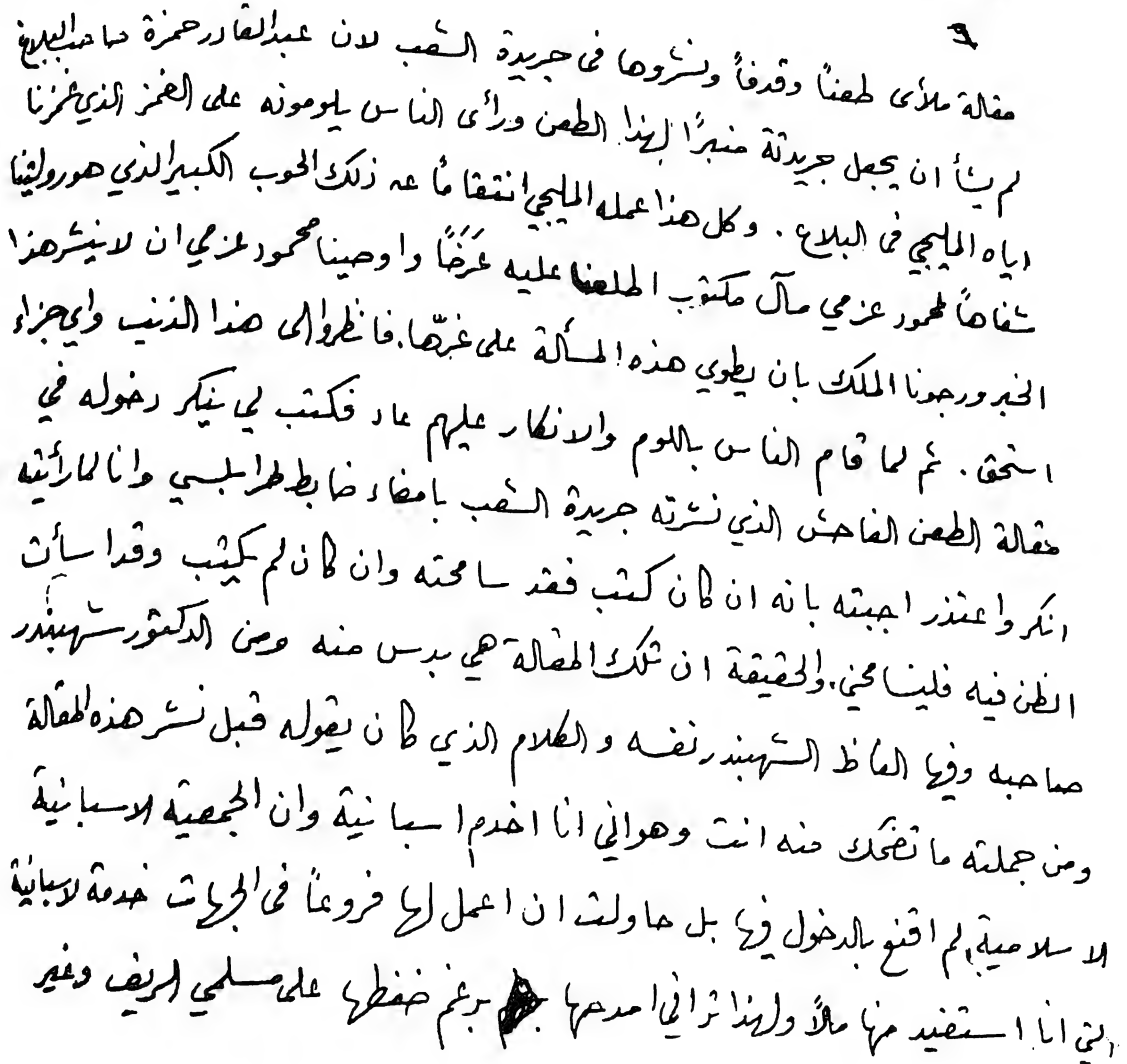 ٩
مقالة ملأى طعناً وقدفاً ونشروها فى جريدة الشعب لان عبدالقادر حمزة صاحب البلاغ
لم يشأ ان يجعل جريدتة منبرًا لهذا الطعن ورأى الناس يلومونه على الغمز الذي غمزنا
اياه المليجي فى البلاغ . وكل هذا عمله المليجي انتقاماً عن ذلك الحوب الكبير الذي هو روايتنا
شفاهاً لمحمود عزمي مآل مكتوب اطلعنا عليه عَرَضًا واوصينا محمود عزمي ان لا ينشر هذا
الخبر ورجونا الملك بان يطوي هذه المسألة على غرّها. فانظروا الى هذا الذنب واي جزاء
استحق . ثم لما قام الناس باللوم والانكار عليهم عاد فكتب لي ينكر دخوله في
مقالة الطعن الفاحش الذي نشرته جريدة الشعب بامضاء ضابط طرابلسي وانا لما رأيته
انكر واعتذر اجبته بانه ان كان كتب فقد سامحته وان كان لم يكتب وقد اسأت
الظن فيه فليسامحني. والحقيقة ان تلك المقالة هي بدس منه ومن الدكتور شهبندر
صاحبه وفيها الفاظ الشهبندر نفسه والكلام الذي كان يقوله قبل نشر هذه المقالة
ومن جملته ما تضحك منه انت وهو اني انا اخدم اسبانية وان الجمعية الاسبانية
الاسلامية لم اقنع بالدخول فيها بل حاولت ان اعمل لها فروعاً فى الجهات خدمة لاسبانية
التي انا استفيد منها مالاً ولهذا تراني امدحها برغم ضغطها على مسلمي الريف وغير